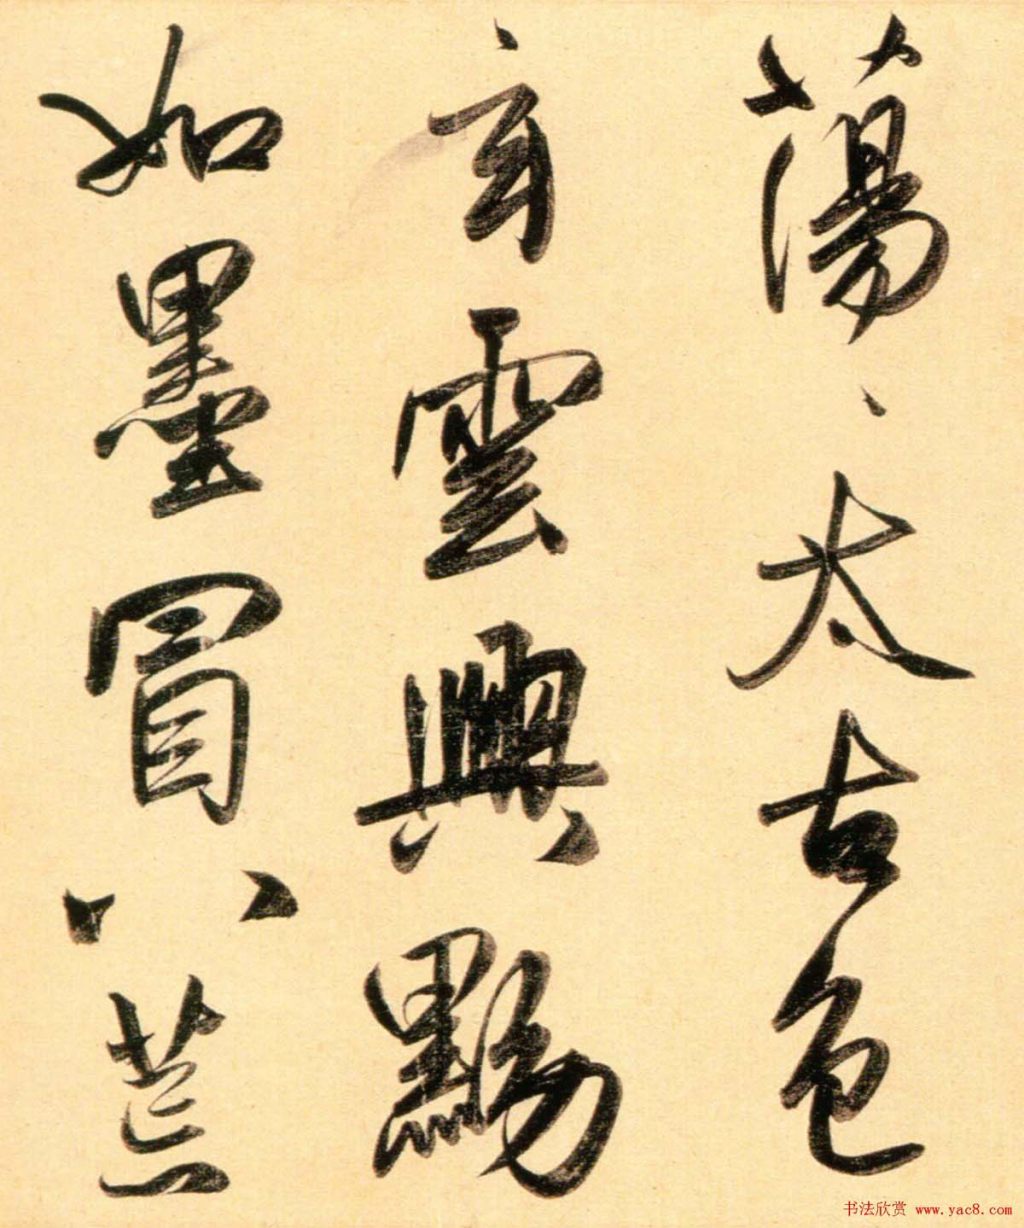 蕩、太古色
雲興黝
如墨冒八荒
书法欣赏 www.yac8.com